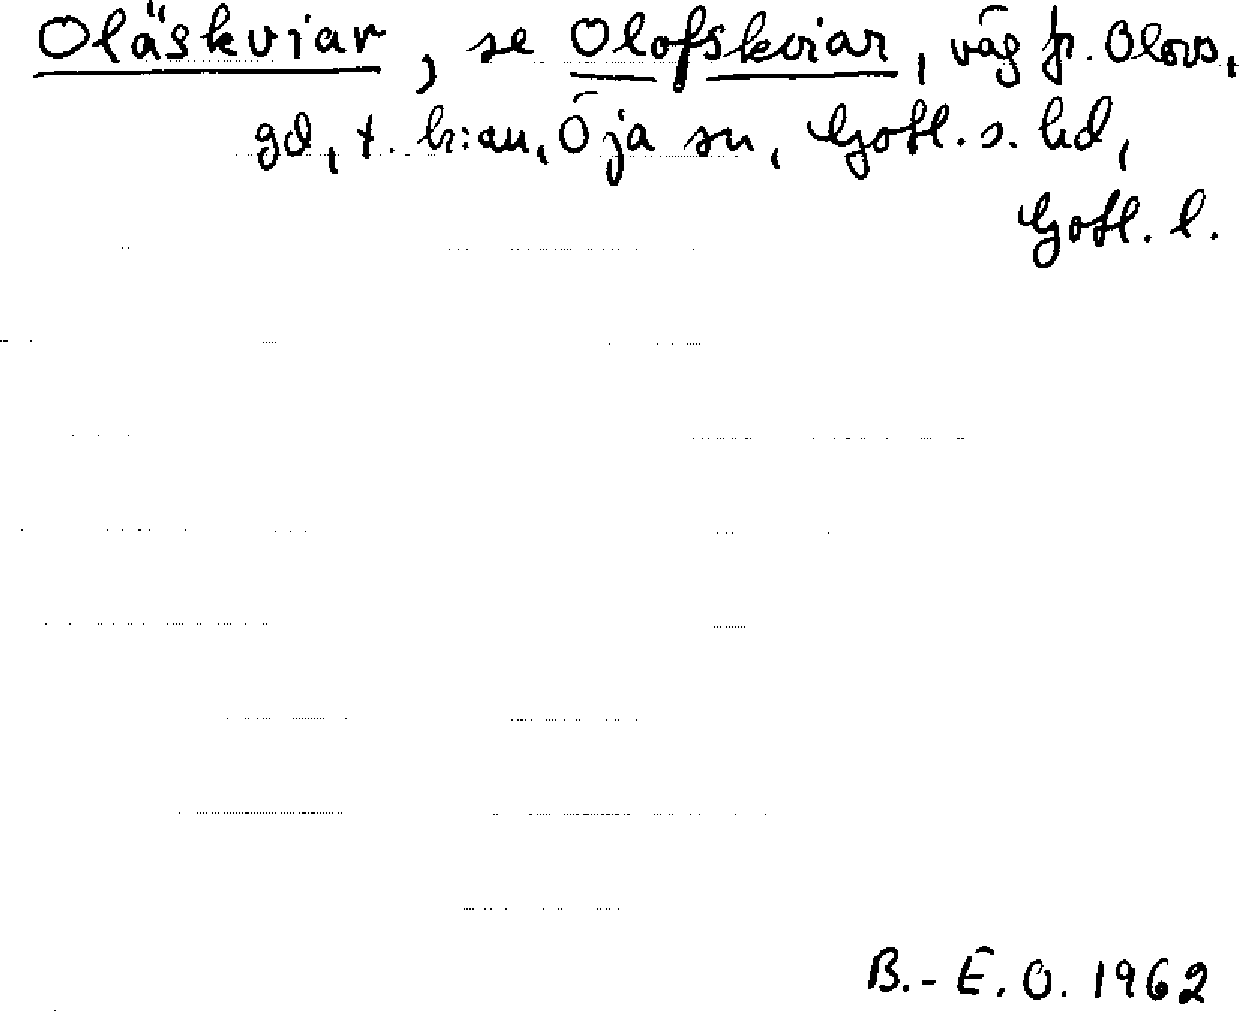 Oläskviar, se Olofskviar, väg fr. Olovs,
gd, t. k:an, Öja sn, Gotl. s. hd,
Gotl. l.
B.-E.O. 1962